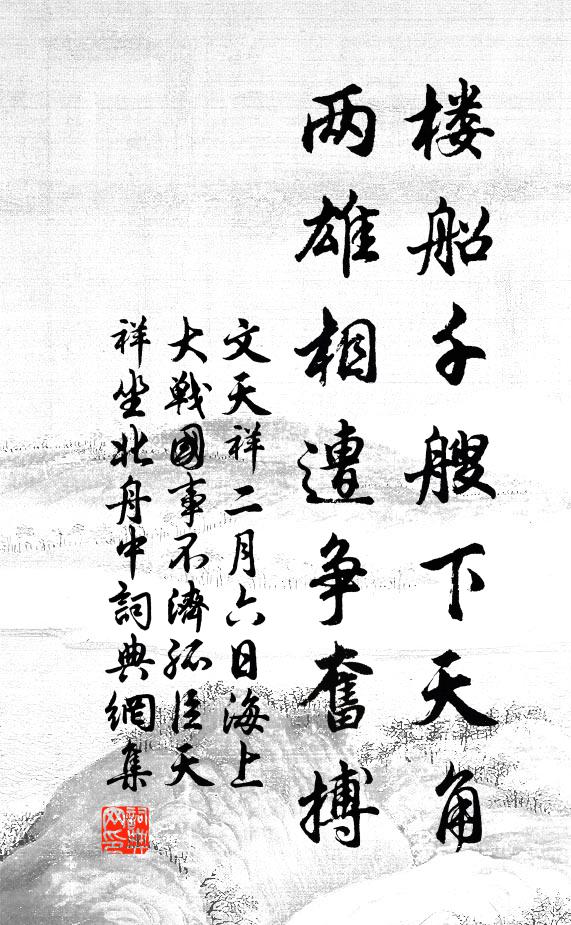 楼船千艘下天角
两雄相遭争奮搏
文天祥二月六日海上
大戰國事不濟孤臣天
祥坐北舟中詞典網集